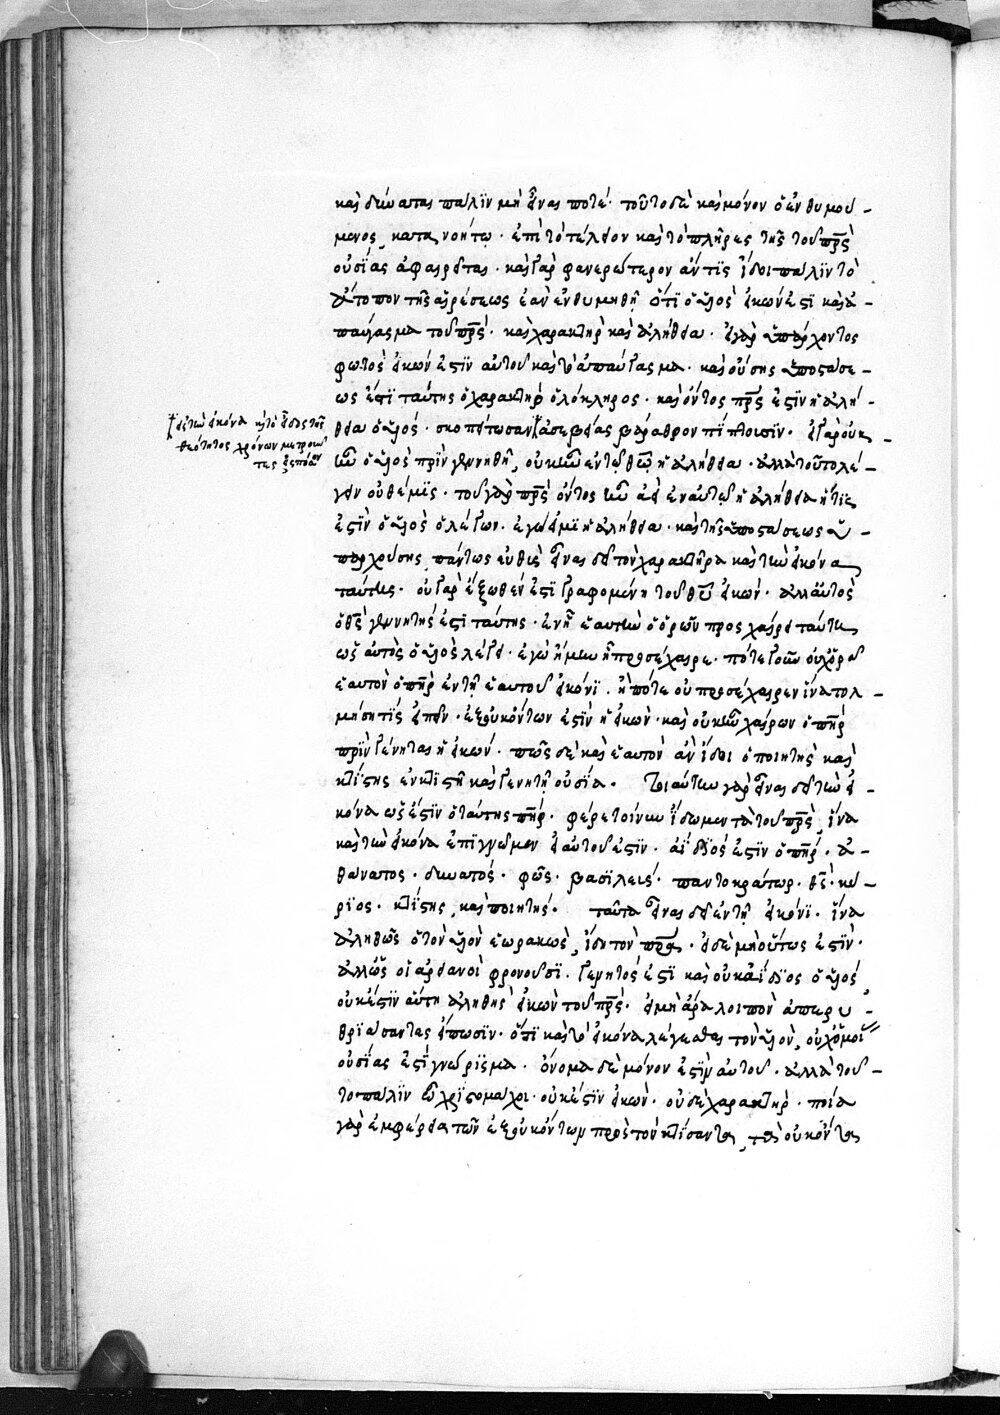 καὶ δύναται πάλϊν μὴ εἶναι ποτέ· τοῦτο δὲ καὶ μόνον ὁ ἐνθυμού-
μενος, κατανοήτω· ἐπὶ τὸ τέλειον καὶ τὸ πλῆρες τῆς τοῦ πρς
οὐσΐας ἀφαιρεῖται· καὶ γὰρ φανερώτερον ἄν τϊς ἴδοι πάλϊν τὸ
ἄτοπον τῆς αἱρέσεως ἐὰν ἐνθυμηθῇ ὅτϊ ὁ υἱὸς εἰκών ἐστϊ καὶ ἀ-
παύγασμα τοῦ πρς· καὶ χαρακτὴρ καὶ ἀλήθεια· εἰ γὰρ ὑπάρχοντος
φωτὸς εἰκών ἐστϊν αὐτοῦ καὶ τὸ ἀπαύγασμα· καὶ οὔσης ὑποστάσε-
ως ἐστϊ ταύτης ὁ χαρακτὴρ ὁλόκληρος· καὶ ὄντος πρς ἐστϊν ἡ ἀλή-
θεια ὁ υἱός· σκοπείτωσαν ἀσεβείας βάραθρον πΐπτουσϊν· εἰ γὰρ οὐκ -
ἦν ὁ υἱὸς πρϊν γεννηθῇ, οὐκ ἦν ἐν τῷ θῷ ἡ ἀλήθεια· ἀλλὰ τοῦτο λέ-
γειν οὐ θέμϊς· τοῦ γὰρ πρς ὄντος ἦν ἀεὶ ἐν αὐτῷ ἡ ἀλήθεια ἥτϊς
ἐστϊν ὁ υἱὸς ὁ λέγων· ἐγώ εἰμι ἡ ἀλήθεια· καὶ τῆς ὑποστάσεως ὑ-
παρχούσης, πάντως εὐθὺς εἶναι δεῖ τὸν χαρακτῆρα καὶ τὴν εἰκόνα
ταύτης· οὐ γὰρ ἔξωθέν ἐστϊ γραφομένη τοῦ θῦ εἰκών· ἀλλ᾽ αὐτὸς
ὁ θς γεννητής ἐστϊ ταύτης· ἐν ᾗ ἑαυτὸν ὁρῶν προσχαίρει ταύτῃ
ὡς αὐτὸς ὁ υἱὸς λέγει· ἐγὼ ἤμην ᾗ προσέχαιρε· πότε γοῦν οὐχ ἑώρα
ἑαυτὸν ὁ πηρ ἐν τῇ ἑαυτοῦ εἰκόνϊ· ἢ πότε οὐ προσέχαιρεν ἵνα τολ-
μήσῃ τϊς εἰπεῖν· ἐξ οὐκ ὄντων ἐστϊν ἡ εἰκών· καὶ οὐκ ἦν χαίρων ὁ πηρ
πρϊν γένηται ἡ εἰκών· πῶς δὲ καὶ ἑαυτὸν ἂν ἴδοι ὁ ποιητὴς καὶ
κτΐστης ἐν κτϊστῇ καὶ γενητῇ οὐσΐα· τοιαύτην γὰρ εἶναι δεῖ τὴν εἰ-
κόνα ὥς ἐστϊν ὁ ταύτης πηρ· φέρε τοίνυν ἴδωμεν τὰ τοῦ πρς, ἵνα
καὶ τὴν εἰκόνα ἐπϊγνῶμεν εἰ αὐτοῦ ἐστϊν· ἀΐδϊός ἐστϊν ὁ πηρ· ἀ-
θάνατος· δυνατός· φῶς· βασϊλεύς· παντοκράτωρ· θς· κύ-
ρϊος· κτΐστης, καὶ ποιητής· ταῦτα εἶναι δεῖ ἐν τῇ εἰκόνϊ· ἵνα
ἀληθῶς ὁ τὸν υἱὸν ἑωρακώς, ἴδῃ τὸν πρα· εἰ δὲ μὴ οὕτως ἐστϊν·
ἀλλ᾽ ὡς οἱ ἀρειανοὶ φρονοῦσϊ· γενητός ἐστϊ καὶ οὐκ ἀΐδϊος ὁ υἱός,
οὐκ ἔστϊν αὕτη ἀληθὴς εἰκὼν τοῦ πρς· εἰ μὴ ἄρα λοιπὸν ἀπερυ-
θρϊάσαντες εἴπωσϊν· ὅτϊ καὶ τὸ εἰκόνα λέγεσθαι τὸν υἱόν, οὐχ ὁμοί
οὐσΐας ἐστϊ γνώρϊσμα· ὄνομα δὲ μόνον ἐστϊν αὐτοῦ· ἀλλὰ τοῦ-
το πάλϊν ὦ χρϊστομάχοι· οὐκ ἔστϊν εἰκών· οὐδὲ χαρακτήρ· ποία
γὰρ ἐμφέρεια τῶν ἐξ οὐκ ὄντων πρὸς τὸν κτΐσαντα, τὰ οὐκ ὄντα
οἱ τὴν εἰκόνα καὶ τὸ εἶδος τῆς
θεότητος χρόνῳ μετροῦν
τες εἰς πόσον